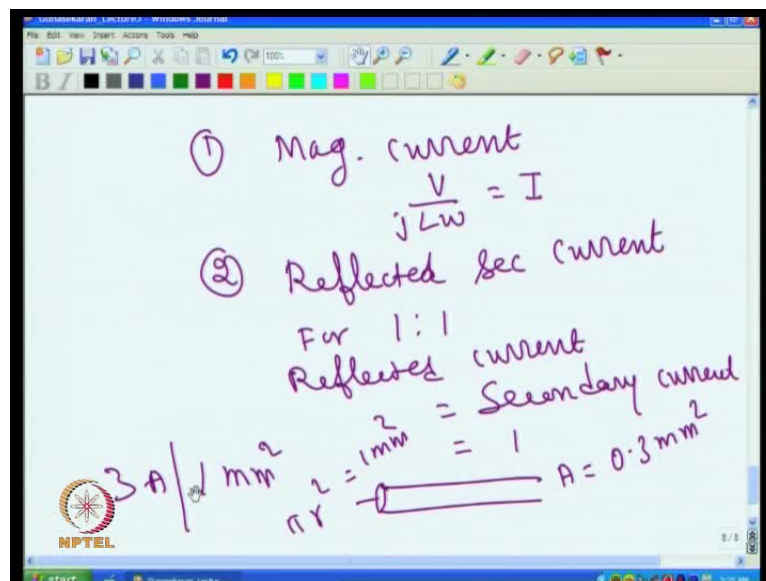 Gunasekaran_Lecture3 - Windows Journal
File Edit View Insert Actions Tools Help
100%
B I
① Mag. current
V / jLw = I
② Reflected Sec current
For 1:1
Reflected current
= Secondary current
= 1
3 A / 1 mm²
πr² = 1mm²
A = 0.3 mm²
NPTEL
8/8
start